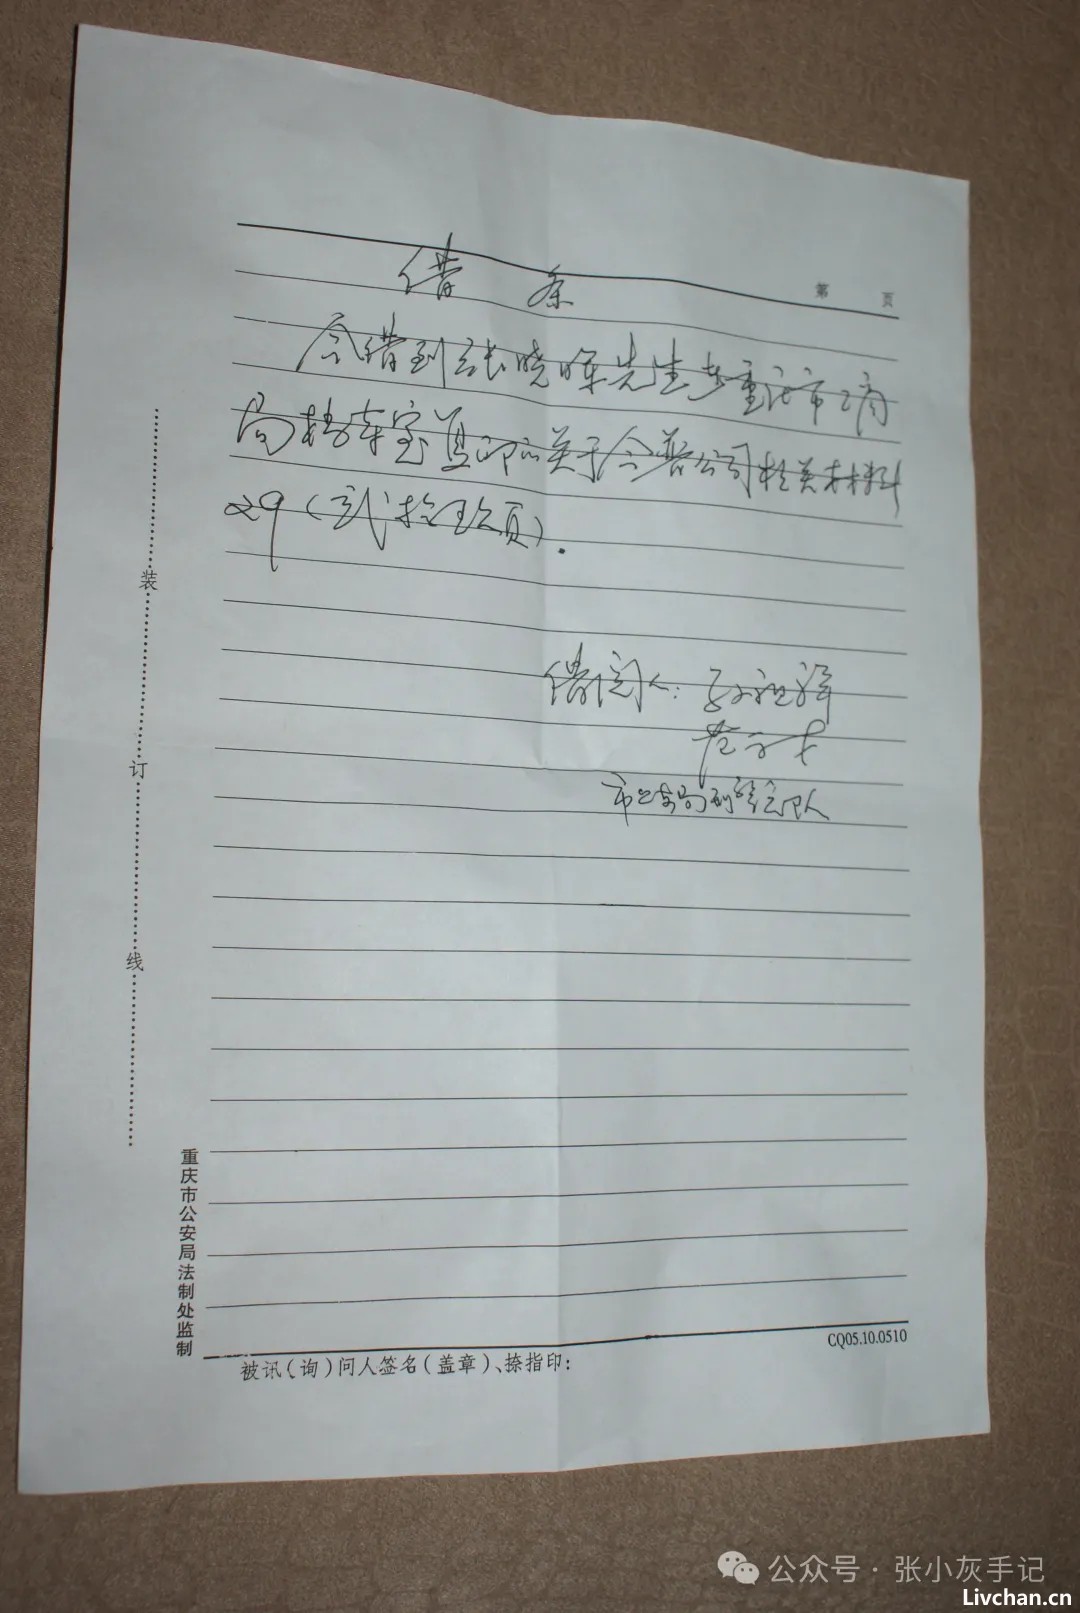 第 页
借 条
今借到张晓晖先生在重庆市工商
局档案室复印的关于今普公司相关材料
29(贰拾玖页).
借阅人:
市公安局刑警总队
装
订
线
重庆市公安局法制处监制
CQ05.10.0510
被讯(询)问人签名(盖章)、捺指印:
公众号·张小灰手记
Livchan.cn